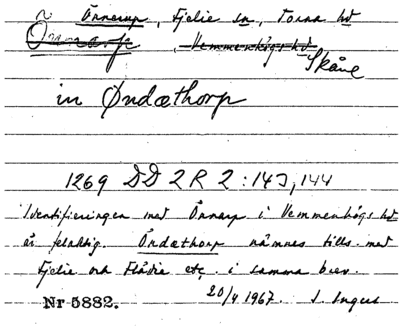 Önnerup, Fjelie sn, Torna hd
Önnarp, Vemmenhögs hd
Skåne
in Øndæthorp
1269 DD 2 R 2:143, 144
Identifieringen med Önnarp i Vemmenhögs hd
är felaktig. Öndæthorp nämnes tills. med
Fjelie och Flädie etc. i samma brev.
Nr 5882. 20/4 1967. J. Ingers